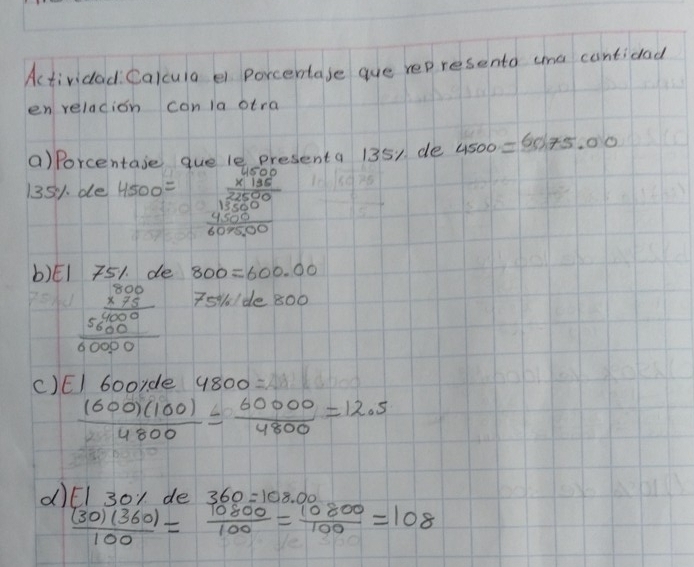 Actividad: Calcula el Porcentaje que representa una cantidad
en relación con la otra
a) Porcentaje que le presenta 135% de 4500 = 6075.00
135% de 4500 =
4500
x 135
22500
13500
4500
6075.00
b) El 75% de 800 = 600.00
800
x 75
75% de 800
4000
5600
600.00
c) El 600% de 4800 =
(600)(100) = 60000 = 12.5
4800 4800
d) El 30% de 360 = 108.00
(30)(360) = 10800 = 10800 = 108
100 100 100